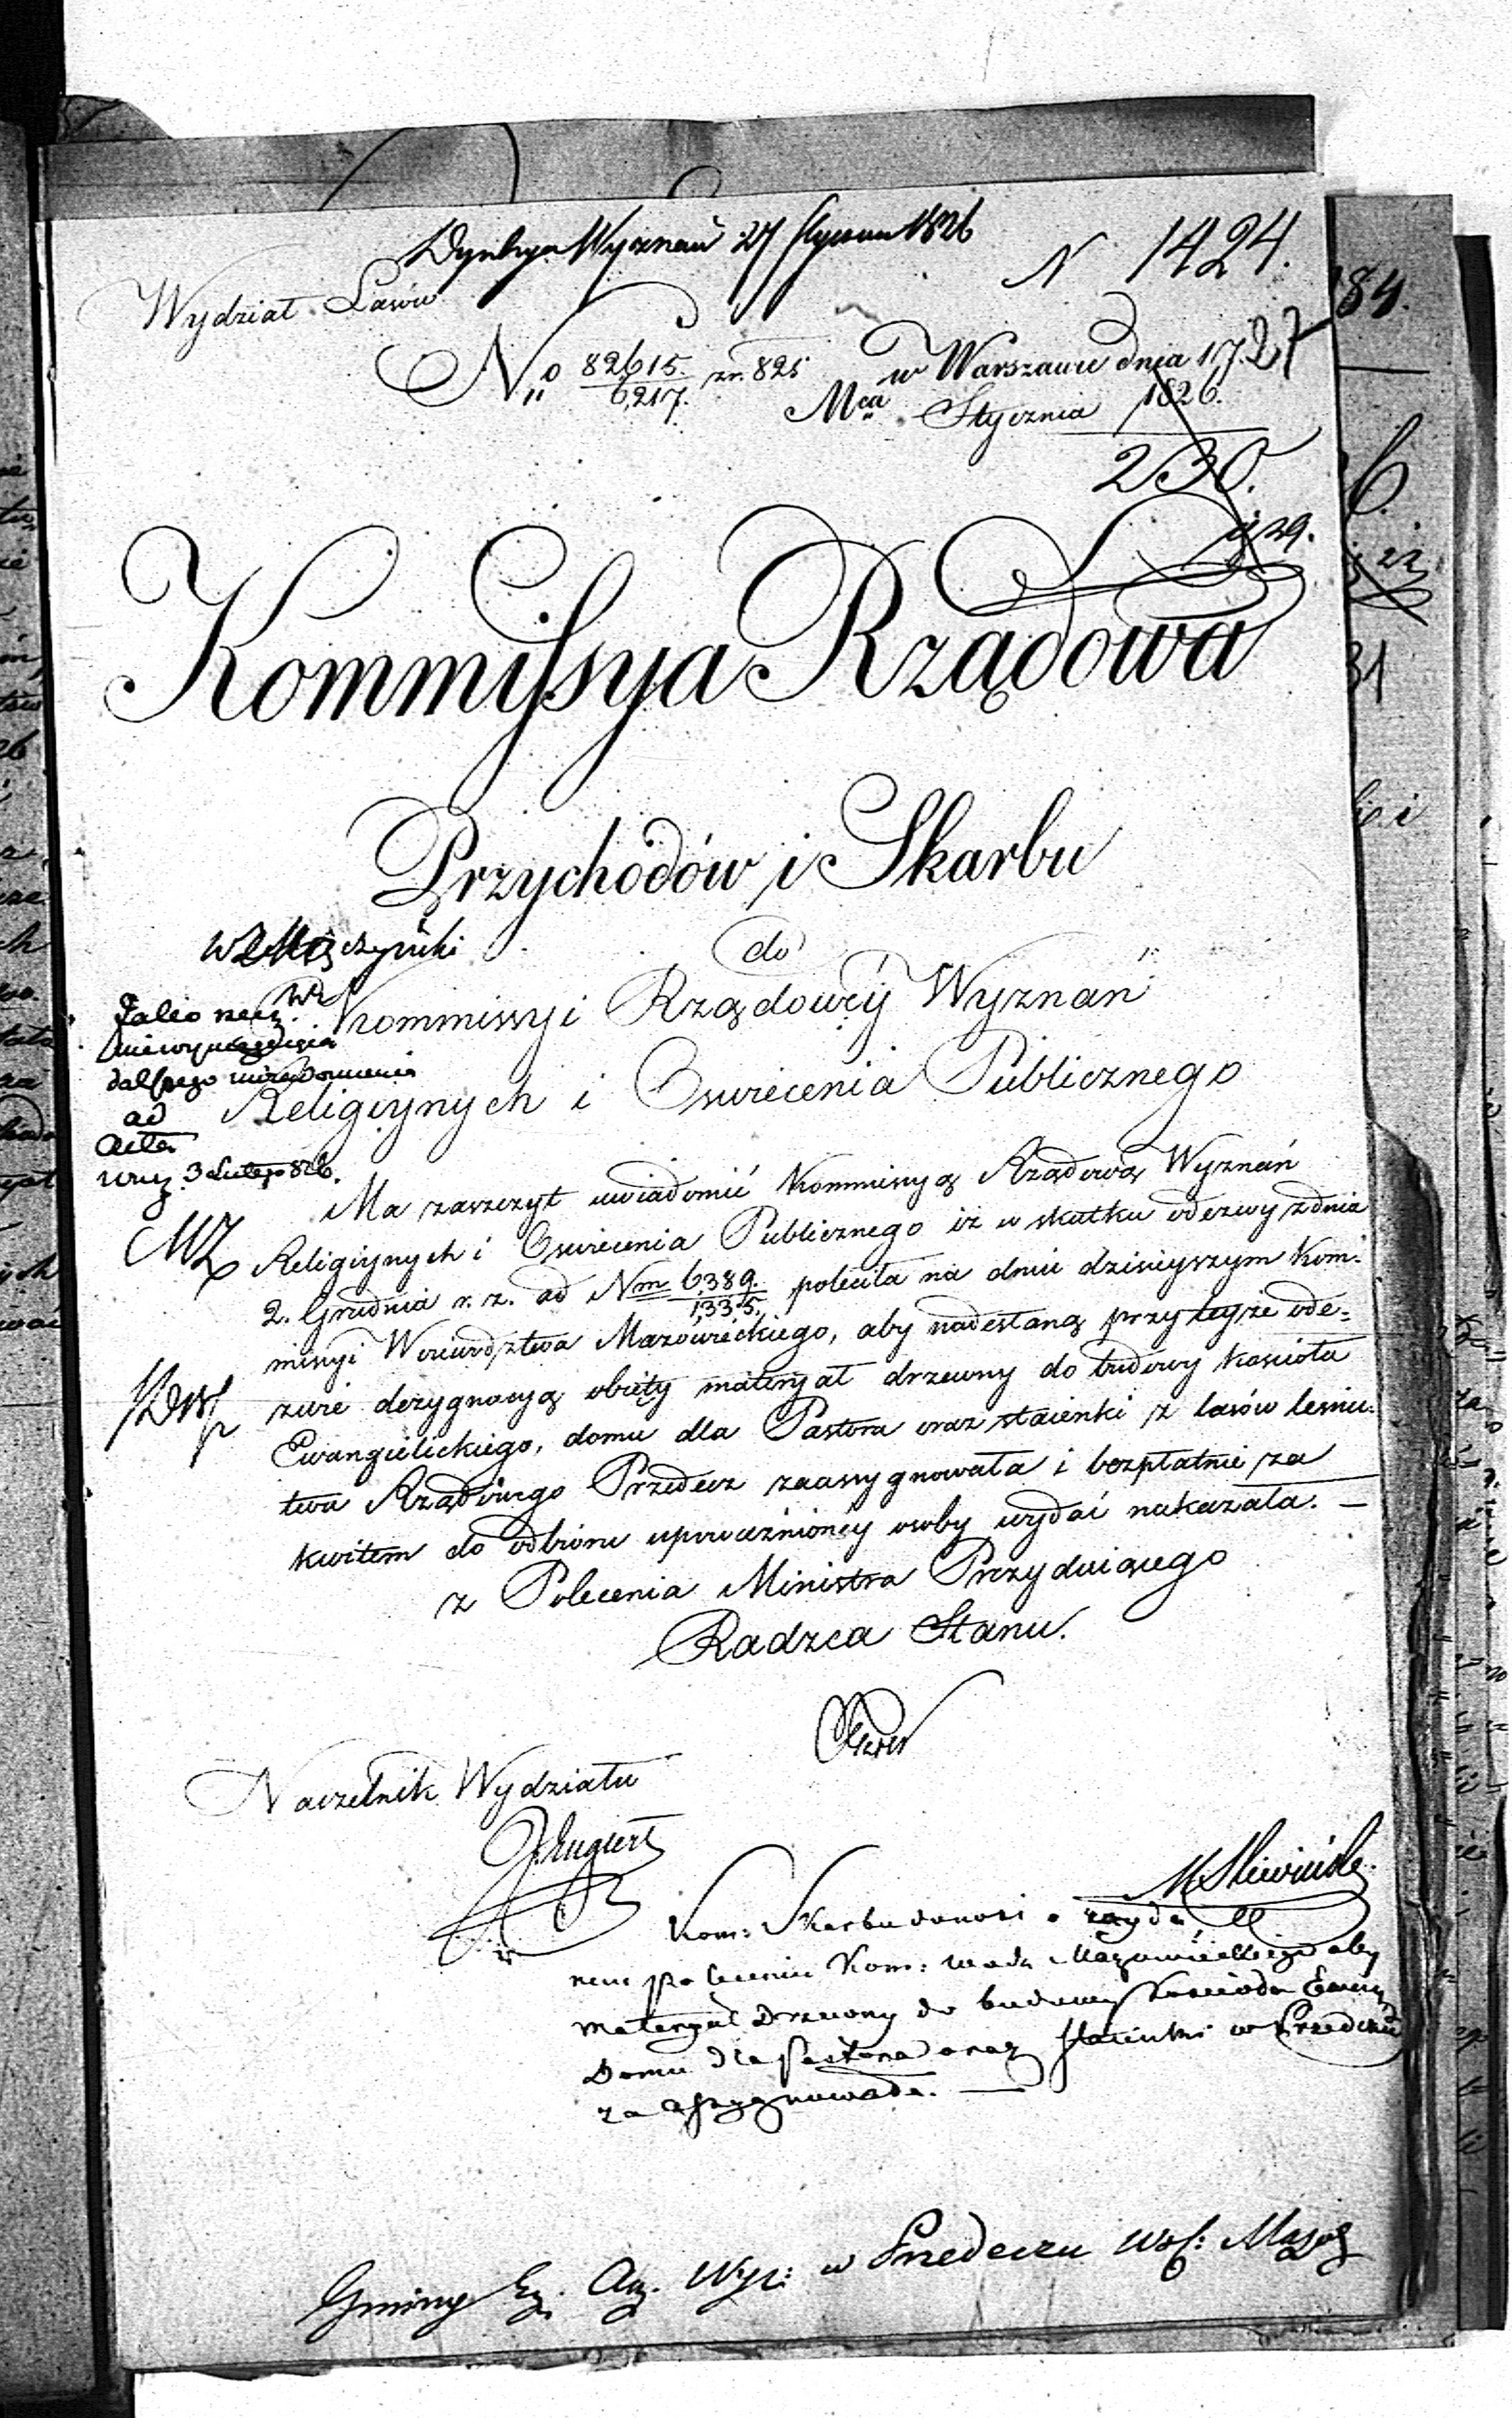 Wyznań 27 Stycznia 1826
N 1424.
Wydział Lasów
84.
No 82615./6217. zr. 825 w Warszawie dnia 17. 27
Mca Stycznia 1826.
230.
29.
Kommissya Rządowa
Przychodów i Skarbu
do
Kommissyi Rządowéy Wyznań
Religiynych i Oswiecenia Publicznego
Jako rzecz
niewymagaiąca
dalszego uwiadomienia
ad
Acta
3 Lutego 826.
Ma zaszczyt uwiadomić Kommissyą Rządową Wyznań
Religiynych i Oswiecenia Publicznego iż w skutku odezwy z dnia
2. Grudnia r. z. ad Nm 6389./1335. poleciła na dniu dzisieyszym Kom:
missyi Woiewodztwa Mazowieckiego, aby nadesłaną przy teyże ode=
zwie dezygnacyą obięty materyał drzewny do budowy kościoła
Ewangielickiego, domu dla Pastora oraz staienki z lasów leśnic:
twa Rządowego Przedecz zaassygnowała i bezpłatnie za
kwitem do odbioru upoważnionéy osoby wydać nakazała. —
z Polecenia Ministra Prezyduiącego
Radzca Stanu.
Naczelnik Wydziału
Kom: Skarbu donosi o
nem poleceniu Kom: Mazowieckiego aby
materyał drzewny do budowy Kościoła Ewan
Domu dla Pastora oraz staienki w Przedczu
zaassygnowała. —
Gminy Ew. Aug. Wyz: w Przedeczu Wof: Mazow